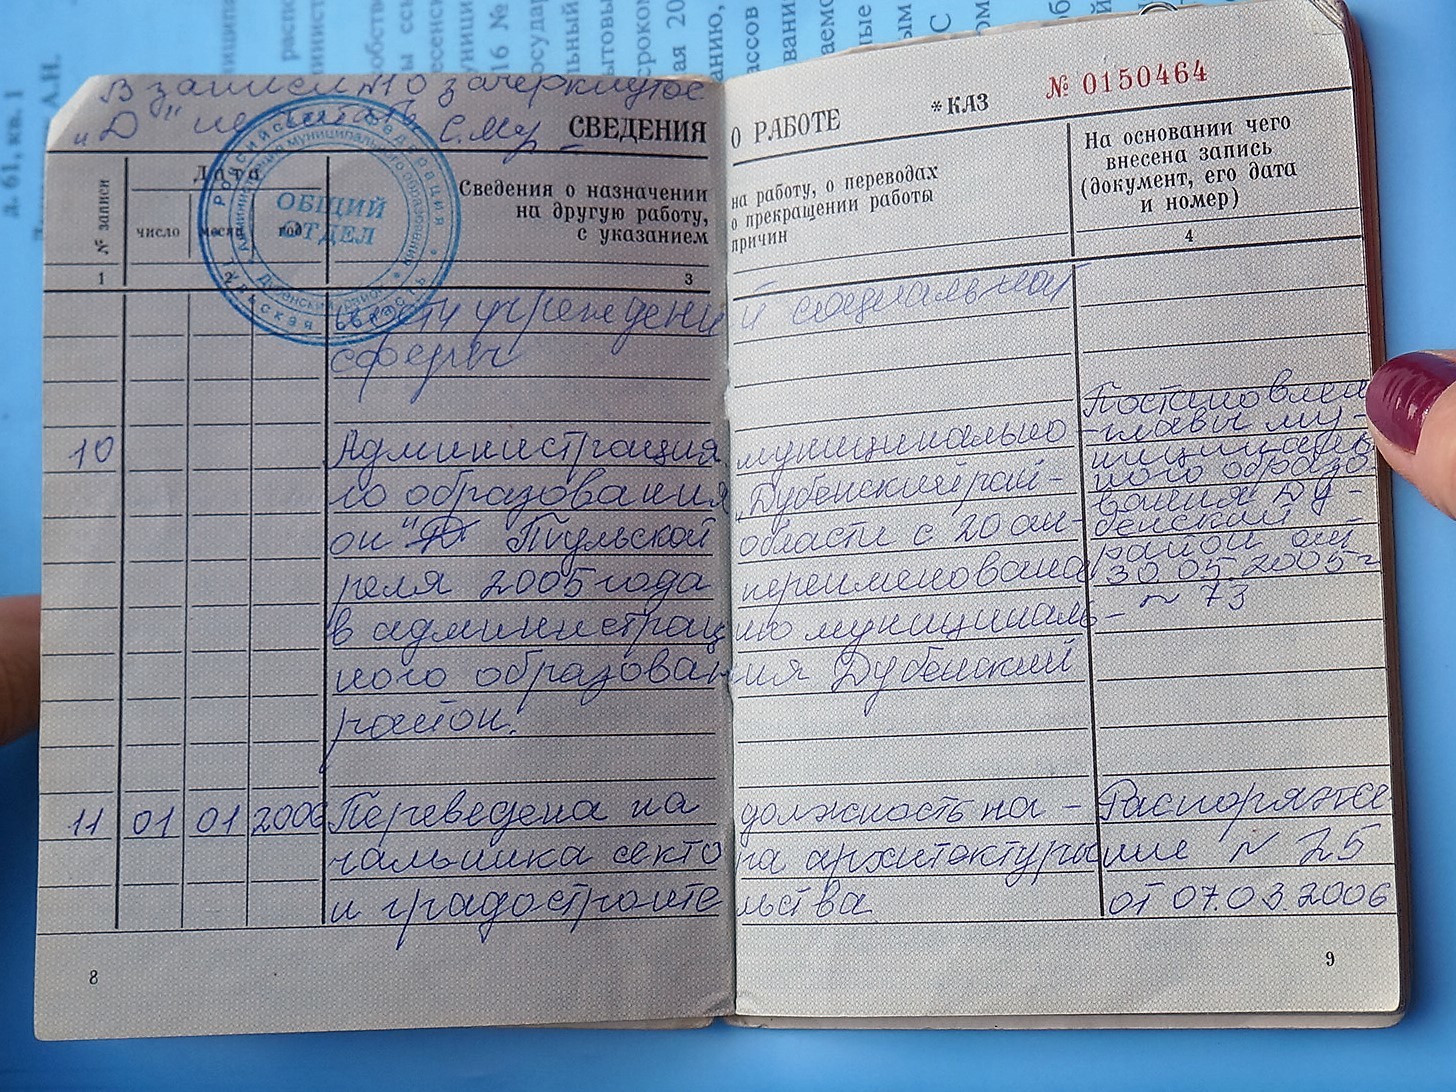 В записи № 10 зачеркнутое
"Д" не читать
СВЕДЕНИЯ О РАБОТЕ
*КАЗ
№ 0150464
№ записи
Дата
число
месяц
год
Сведения о назначении на работу, о переводах
на другую работу, о прекращении работы
с указанием причин
На основании чего
внесена запись
(документ, его дата
и номер)
1
2
3
4
Российская Федерация
Администрация муниципального образования
Дубенский район
Тульская область
ОБЩИЙ
ОТДЕЛ
учреждений социальной
сферы
10
Администрация муниципально
го образования "Дубенский рай-
он" Д Тульской области с 20 ап-
реля 2005 года переименована
в администрацию муниципаль-
ного образования Дубенский
район.
Постановлен
главы му-
ниципаль
ного образо
вания Ду-
бенский
район от
30.05.2005 г
№ 73
11 01 01 2006 Переведена на должность на-
чальника сектора архитектуры
и градостроительства
Распоряже
ние № 25
от 07.03.2006
8
9
д. 61, кв. 1
А.Н.